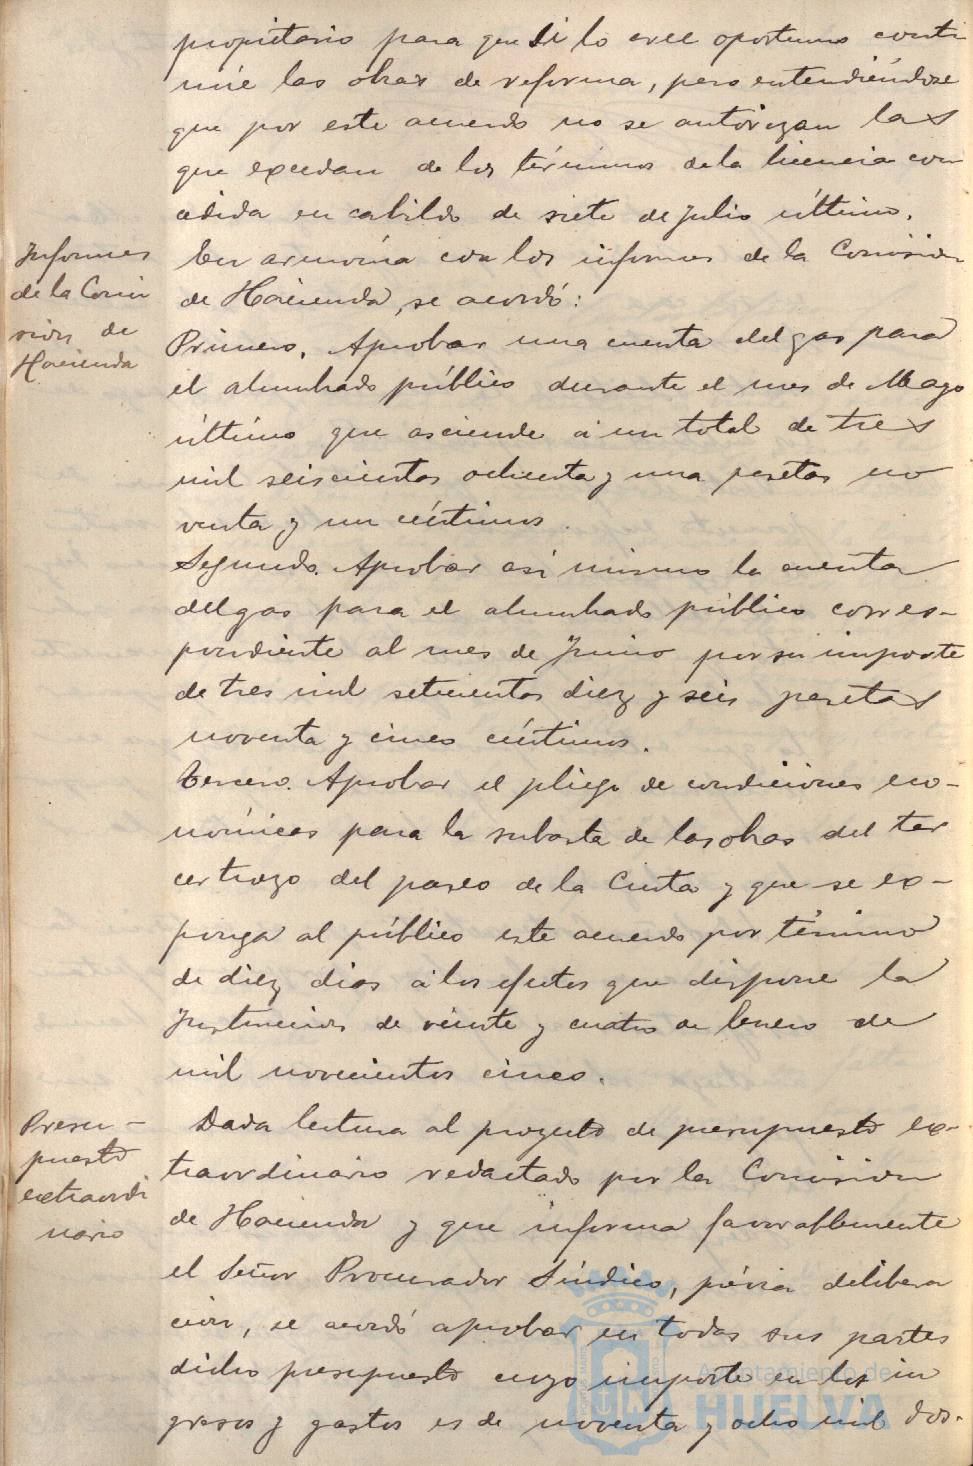 propietario para que si lo cree oportuno conti
núe las obras de reforma, pero entendiéndose
que por este acuerdo no se autorizan las
que excedan de los términos de la licencia con
cedida en cabildo de siete de Julio último.
Informes
de la Comi
sión de
Hacienda
En armonía con los informes de la Comisión
de Hacienda, se acordó:
Primero. Aprobar una cuenta del gas para
el alumbrado público durante el mes de Mayo
último que asciende á un total de tres
mil seiscientas ochenta y una pesetas no
venta y un céntimos.
Segundo. Aprobar así mismo la cuenta
del gas para el alumbrado público corres-
pondiente al mes de Junio por su importe
de tres mil setecientas diez y seis pesetas
noventa y cinco céntimos.
Tercero. Aprobar el pliego de condiciones eco-
nómicas para la subasta de las obras del ter
cer trozo del paseo de la Cinta y que se ex-
ponga al público este acuerdo por término
de diez dias á los efectos que dispone la
Instrucción de veinte y cuatro de Enero de
mil novecientos cinco.
Presu-
puesto
extraordi
nario
Dada lectura al proyecto de presupuesto ex-
traordinario redactado por la Comisión
de Hacienda y que informa favorablemente
el Señor Procurador Síndico, prévia delibera
ción, se acordó aprobar en todas sus partes
dicho presupuesto cuyo importe en los in
gresos y gastos es de noventa y ocho mil dos-
Ayuntamiento de
HUELVA